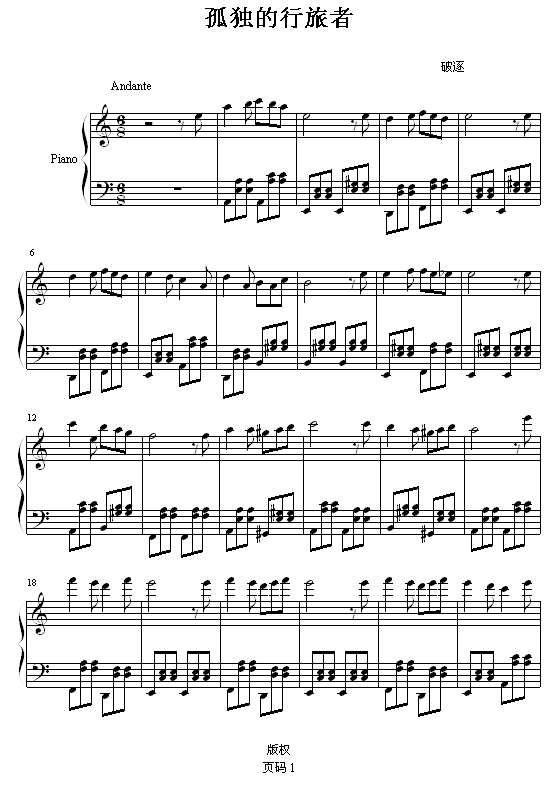 孤独的行旅者
破逐
Andante
Piano
6
12
18
版权
页码 1